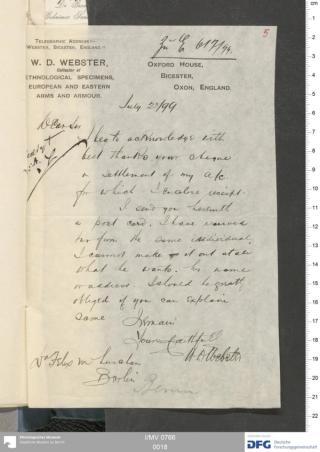 5
Zu E 617/99.
TELEGRAPHIC ADDRESS:—
WEBSTER, BICESTER, ENGLAND.
W. D. WEBSTER,
Collector of
ETHNOLOGICAL SPECIMENS,
EUROPEAN AND EASTERN
ARMS AND ARMOUR.
OXFORD HOUSE,
BICESTER,
OXON, ENGLAND.
July 25/99
Dear Sir
I beg to acknowledge with
best thanks your cheque
in settlement of my a/c
for which I enclose receipt.
I send you herewith
a post card. I have received
from the same individual.
I cannot make it out at all
what he wants. his name
or address. I should be greatly
obliged if you can explain
same
I remain
Yours faithfully
W. D. Webster
Dr Felix von Luschan
Berlin
I/MV 0766
0018
Ethnologisches Museum
DFG Deutsche
Forschungsgemeinschaft